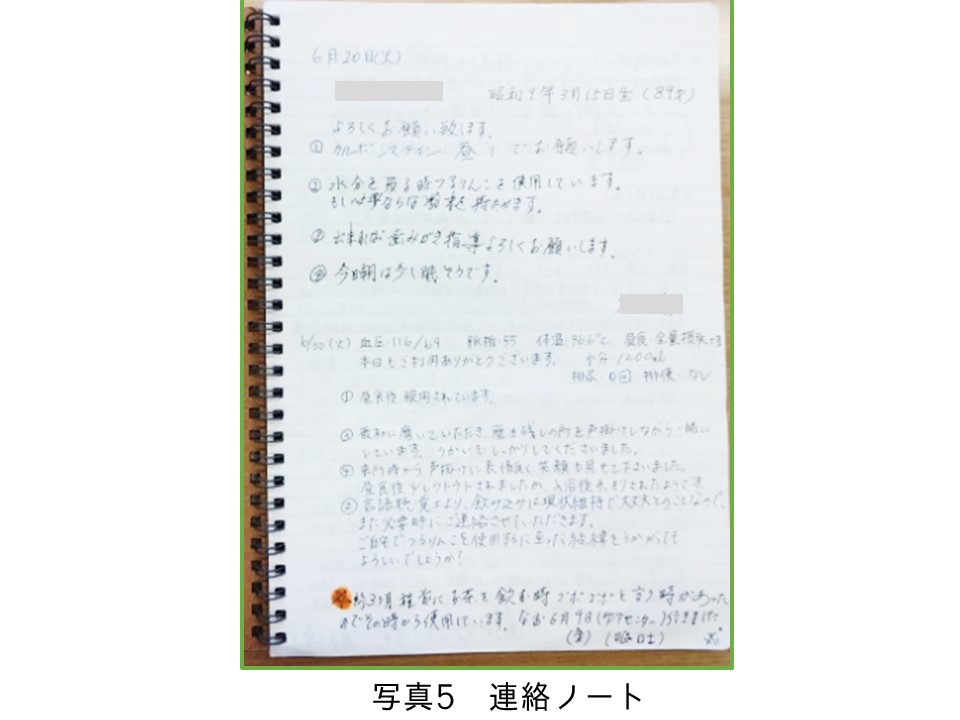 6月20日(火)
昭和9年3月15日生(89才)
よろしくお願い致します。
① カルボシステイン 昼1でお願いします。
② 水分を取る時つるりんこを使用しています。
もし必要ならば 持たせます。
③ 出来れば歯みがき指導よろしくお願いします。
④ 今朝は少し眠そうです。
6/20(火) 血圧:116/69 脈拍:55 体温:36.6℃ 昼食 全量摂取です
本日もご利用ありがとうございます。 水分 1200ml
排尿 回 排便 なし
① 昼食後 服用されています。
③ 最初に磨いていただき 磨き残しの所を声掛けしながら一緒に
しています。うがいもしっかりしてくださいました。
④ 来所時から声掛けに表情良く笑顔も見せて下さいました。
昼食後 少しウトウトされましたが、入浴後 されたようです。
② 言語聴覚士より、飲み込みは現状維持で大丈夫とのことなので、
また必要時にご連絡させていただきます。
ご自宅でつるりんこを使用するに至った経緯をうかがっても
よろしいでしょうか?
約3ヶ月程前にお茶を飲む時 と言う時があった
のでその時から使用しています。なお6月9日(ケアセンター)行きました
(金)
写真5 連絡ノート